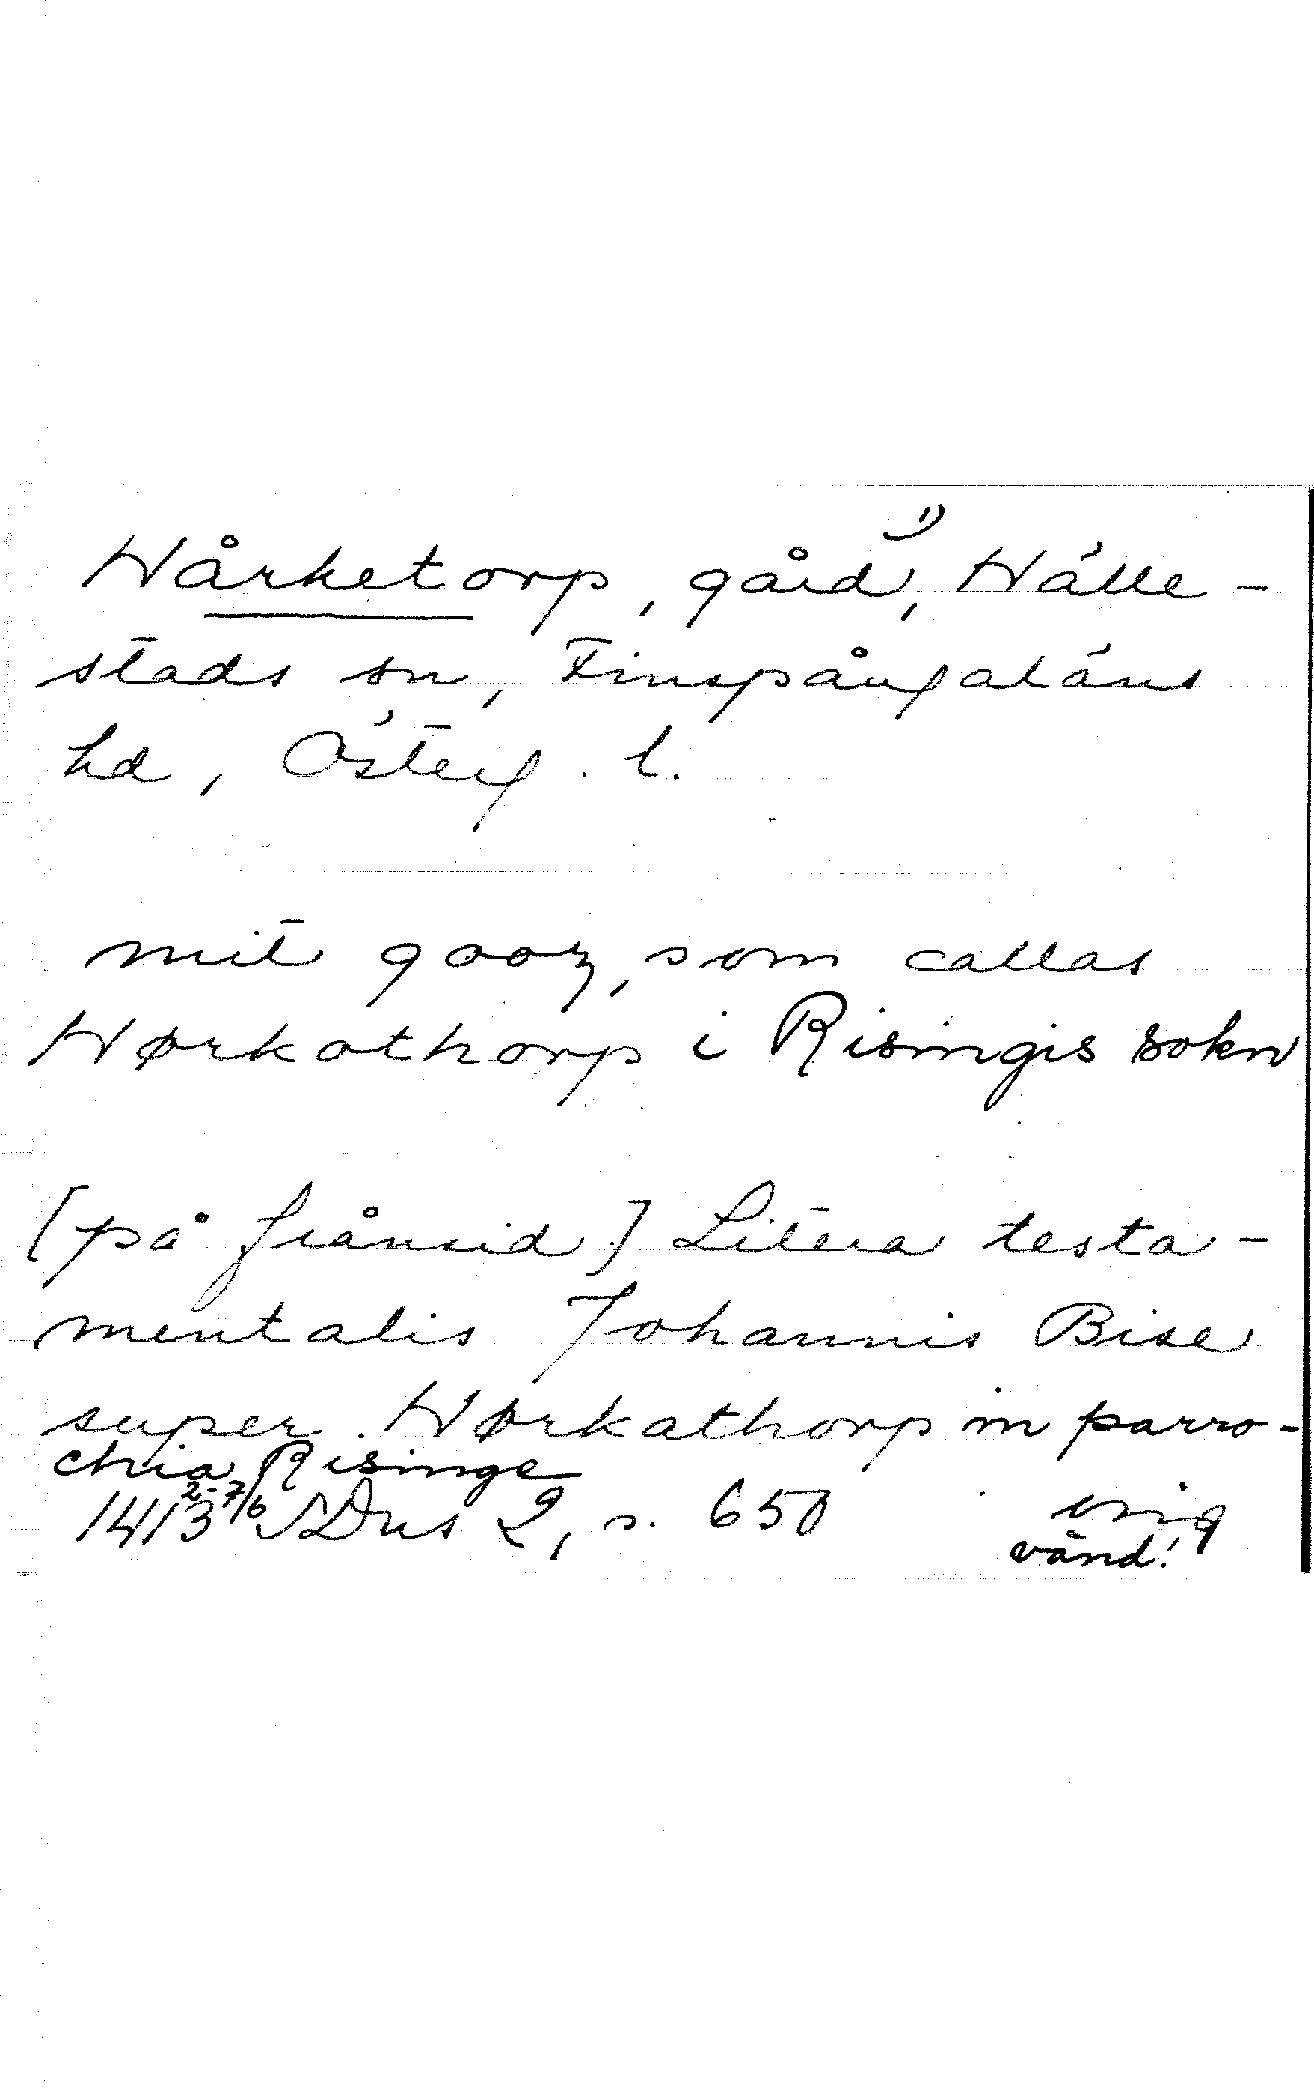 Hårketorp, gård 1), Hälle-
stads sn, Finspångaläns
hd, Österg. l.
mit gooz, som callas
Hørkathorp i Risingis sokn
[på frånsid] Litera testa-
mentalis Johannis Bise
super Hørkathorp in parro-
chia Risinge
1413 2-7/6 SDns 2, s. 650 orig
vänd!